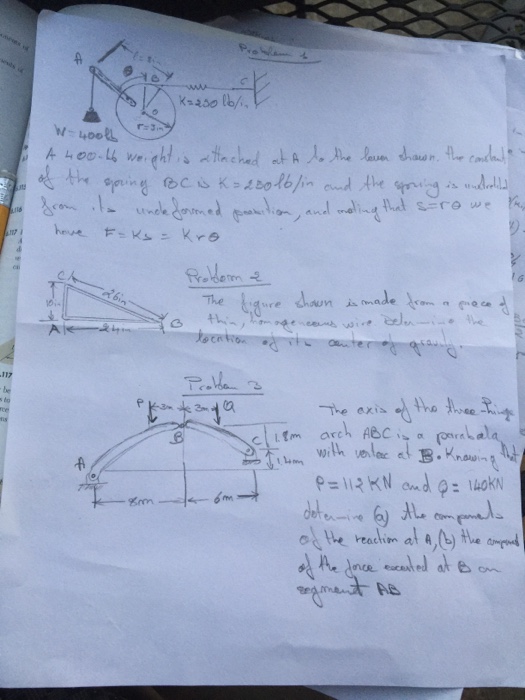 Problem 1
A
l = 8in
θ
B
C
K = 250 lb/in
O
r = 3in
W = 400lb
A 400-lb weight is attached at A to the lever shown. The constant
of the spring BC is K = 250 lb/in and the spring is
from its undeformed position, and noting that s = rθ we
have F = Ks = Krθ
Problem 2
C
26in
10in
A
24in
B
The figure shown is made from a piece of
thin, homogeneous wire Determine the
location of its center of gravity.
Problem 3
P
3m
3m
Q
B
C
1.8m
1.4m
A
8m
6m
The axis of the three-hinge
arch ABC is a parabola
with vertex at B. Knowing that
P = 112 KN and Q = 140KN
determine (a) the components
of the reaction at A, (b) the
of the force exerted at B on
segment AB
117